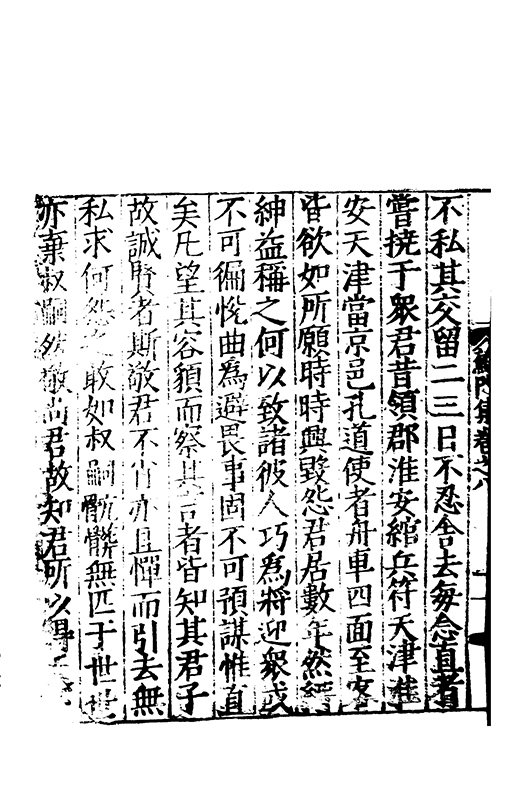 不私其交留二三日不忍舍去每念直者
嘗撓于衆君昔領郡淮安綰兵符天津淮
安天津當京邑孔道使者舟車四面至客
皆欲如所願時時興毀怨君居數年然縉
紳益稱之何以致諸彼人巧為將迎衆或
不可徧悅曲為避畏事固不可預謀惟直
矣凡望其容貌而察其言者皆知其君子
故誠賢者斯敬君不肖亦且憚而引去無
私求何怨之敢如叔嗣骯髒無匹于世世
亦棄叔嗣然敬尚君故知君所以得
門集卷之八